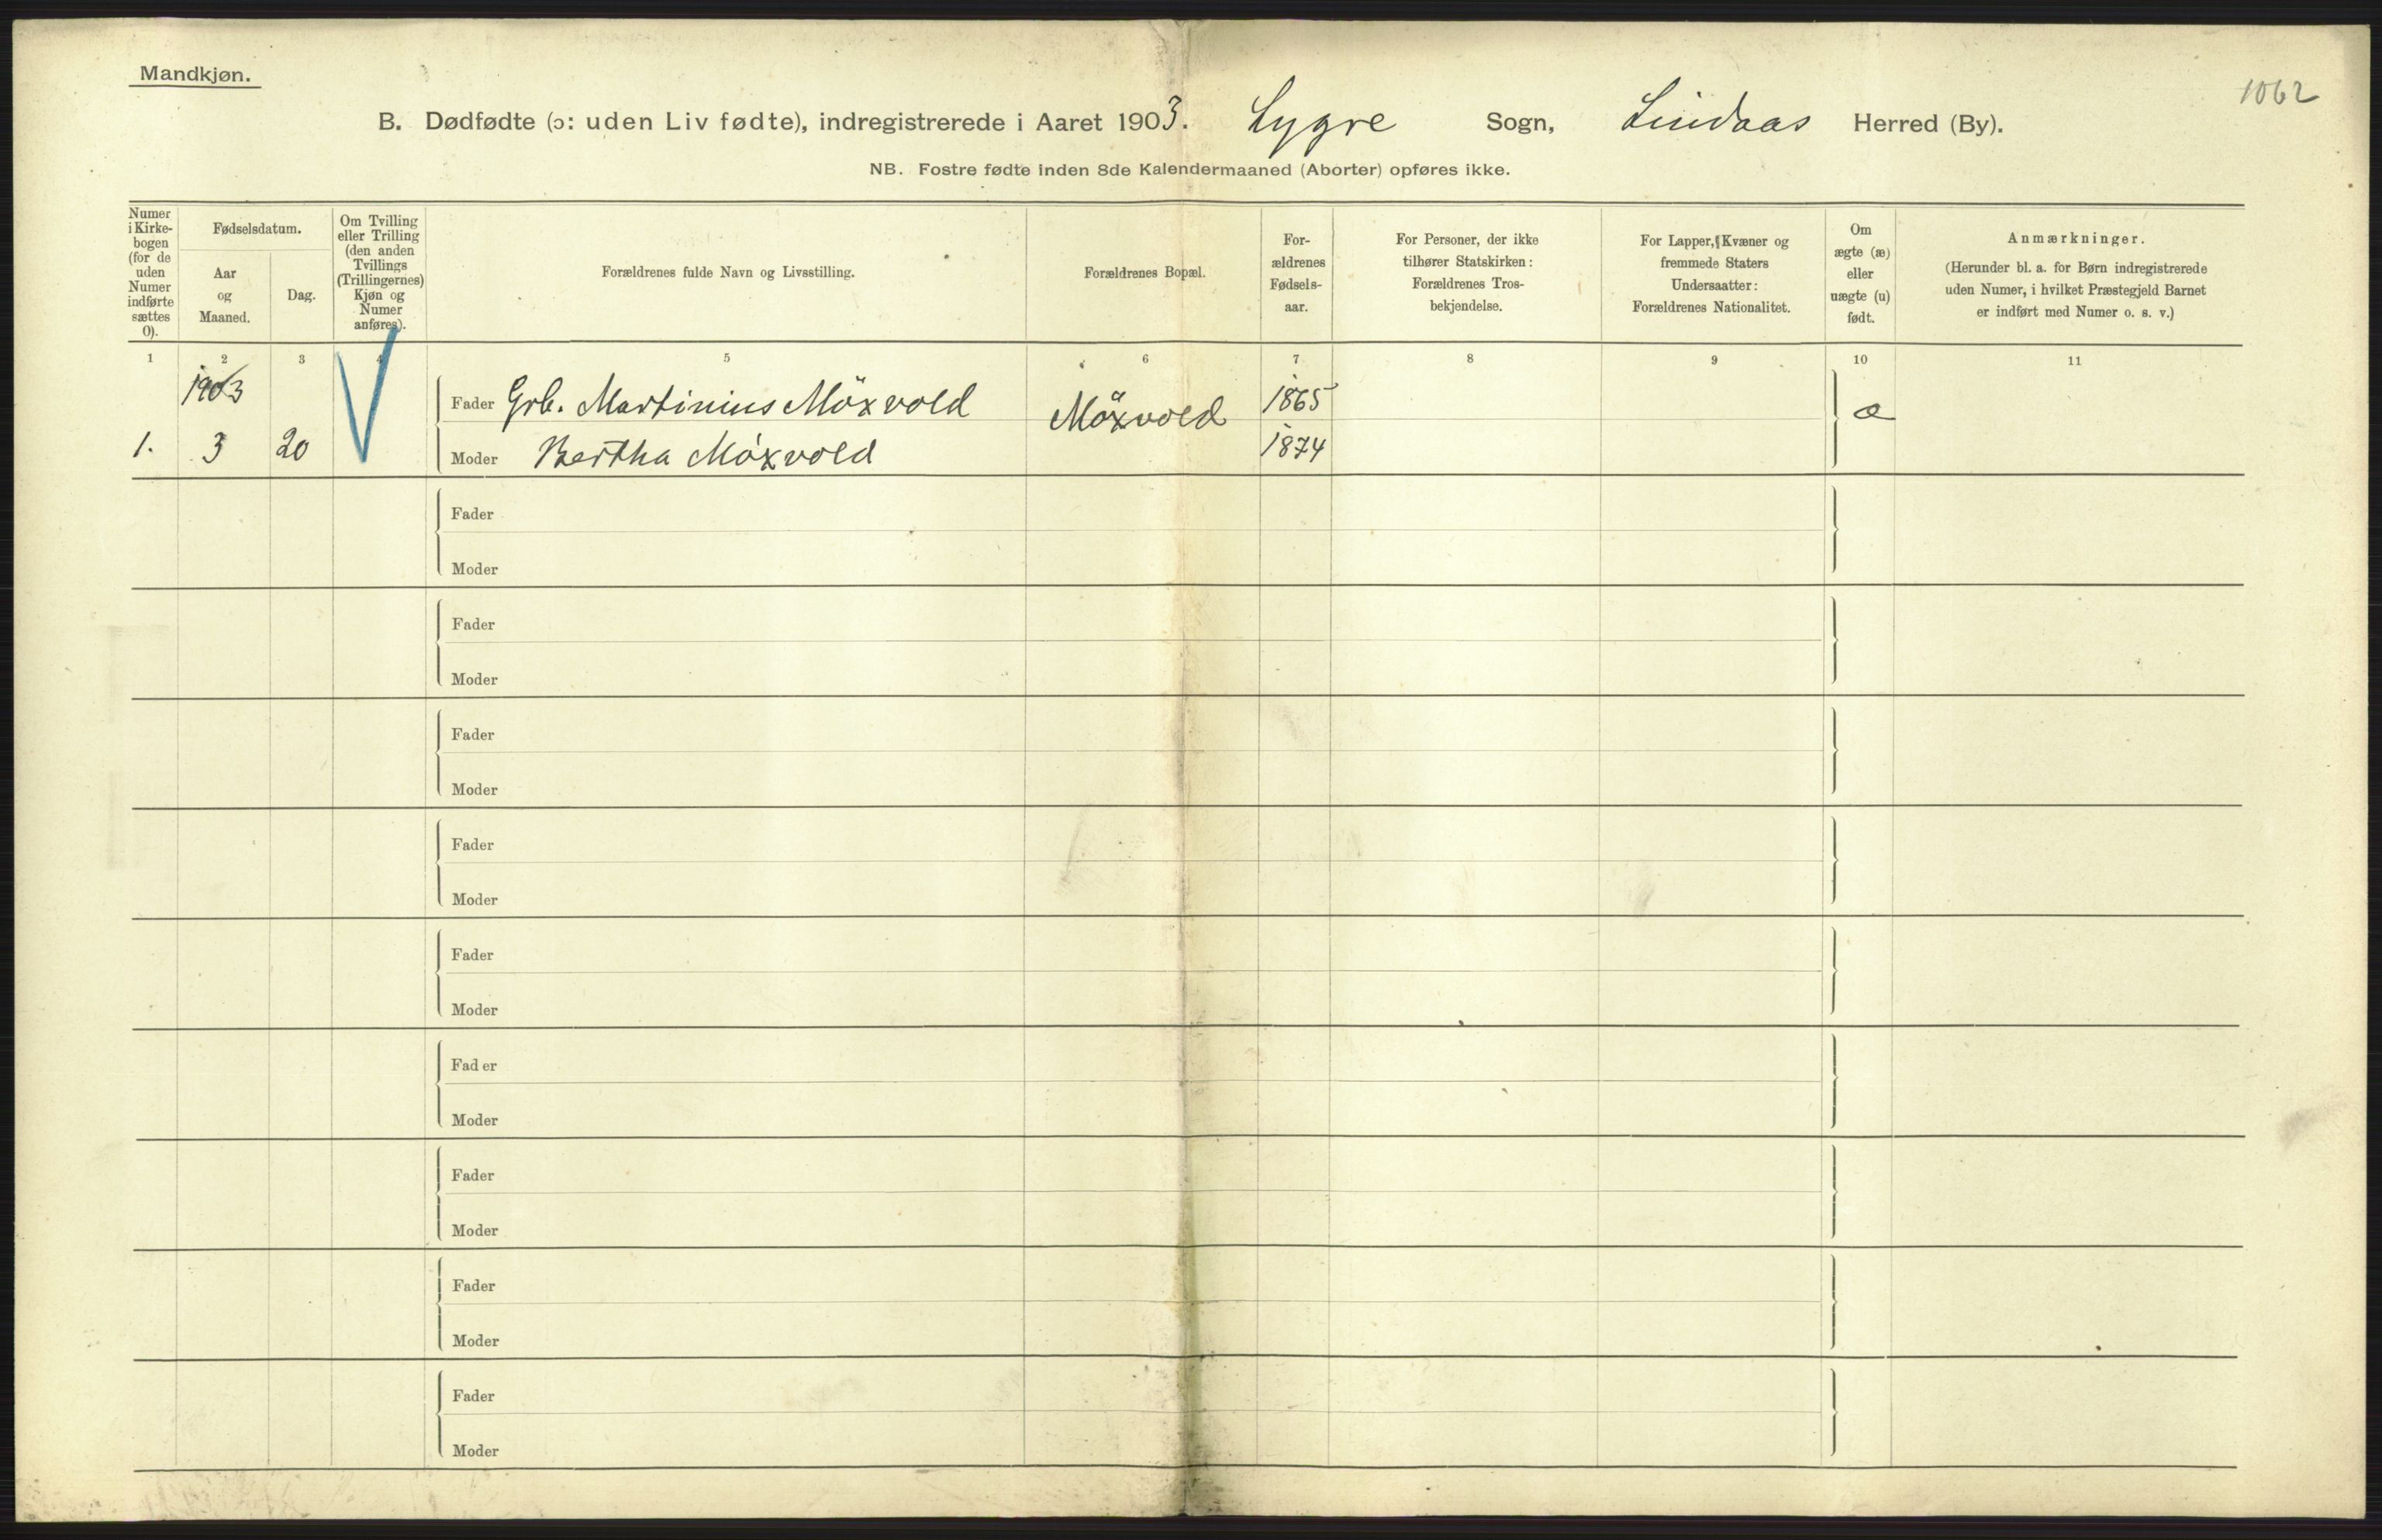 Mandkjøn.
1062
B. Dødfødte (ɔ: uden Liv fødte), indregistrerede i Aaret 1903. Lygre Sogn, Lindaas Herred (By).
NB. Fostre fødte inden 8de Kalendermaaned (Aborter) opføres ikke.
Numer
i Kirke-
bogen
(for de
uden
Numer
indførte
sættes
0).
Fødselsdatum.
Aar
og
Maaned.
Dag.
Om Tvilling
eller Trilling
(den anden
Tvillings
(Trillingernes)
Kjøn og
Numer
anføres).
Forældrenes fulde Navn og Livsstilling.
Forældrenes Bopæl.
For-
ældrenes
Fødsels-
aar.
For Personer, der ikke
tilhører Statskirken:
Forældrenes Tros-
bekjendelse.
For Lapper, Kvæner og
fremmede Staters
Undersaatter:
Forældrenes Nationalitet.
Om
ægte (æ)
eller
uægte (u)
født.
Anmærkninger.
(Herunder bl. a. for Børn indregistrerede
uden Numer, i hvilket Præstegjeld Barnet
er indført med Numer o. s. v.)
1 2 3 4 5 6 7 8 9 10 11
1903
Fader Grb. Martinius Möxvold Möxvold 1865 æ
1. 3 20 Moder Bertha Möxvold 1874
Fader
Moder
Fader
Moder
Fader
Moder
Fader
Moder
Fader
Moder
Fader
Moder
Fader
Moder
Fader
Moder
Fader
Moder